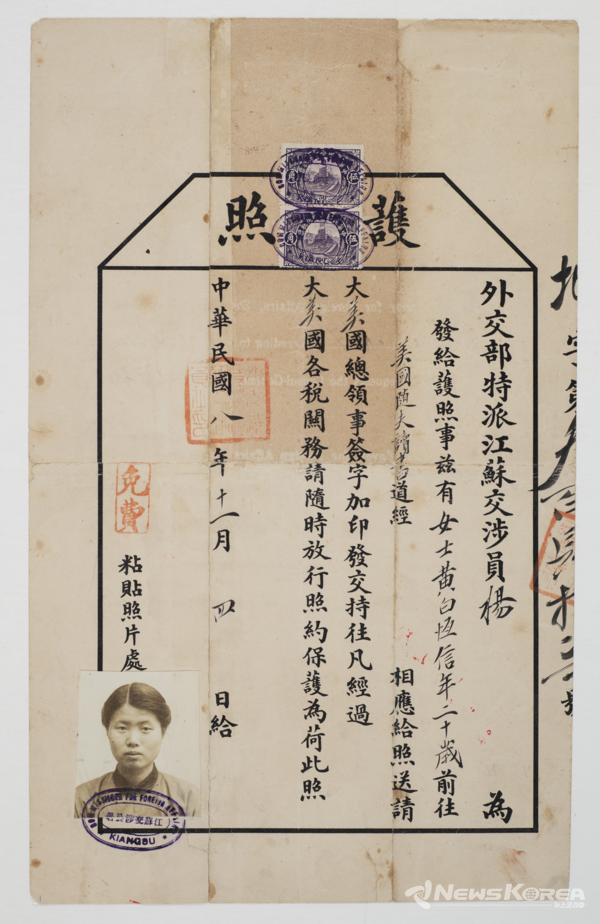 護照
外交部特派江蘇交涉員楊 為
發給護照事茲有女士黃白恆信年二十歲前往
美國隨夫讀書道經 相應給照送請
大美國總領事簽字加印發交持往凡經過
大美國各稅關務請隨時放行照約保護為荷此照
中華民國八年十一月四日給
免費
粘貼照片處
COMMISSIONER FOR FOREIGN AFFAIRS
江蘇交涉公署
KIANGSU
NewsKorea